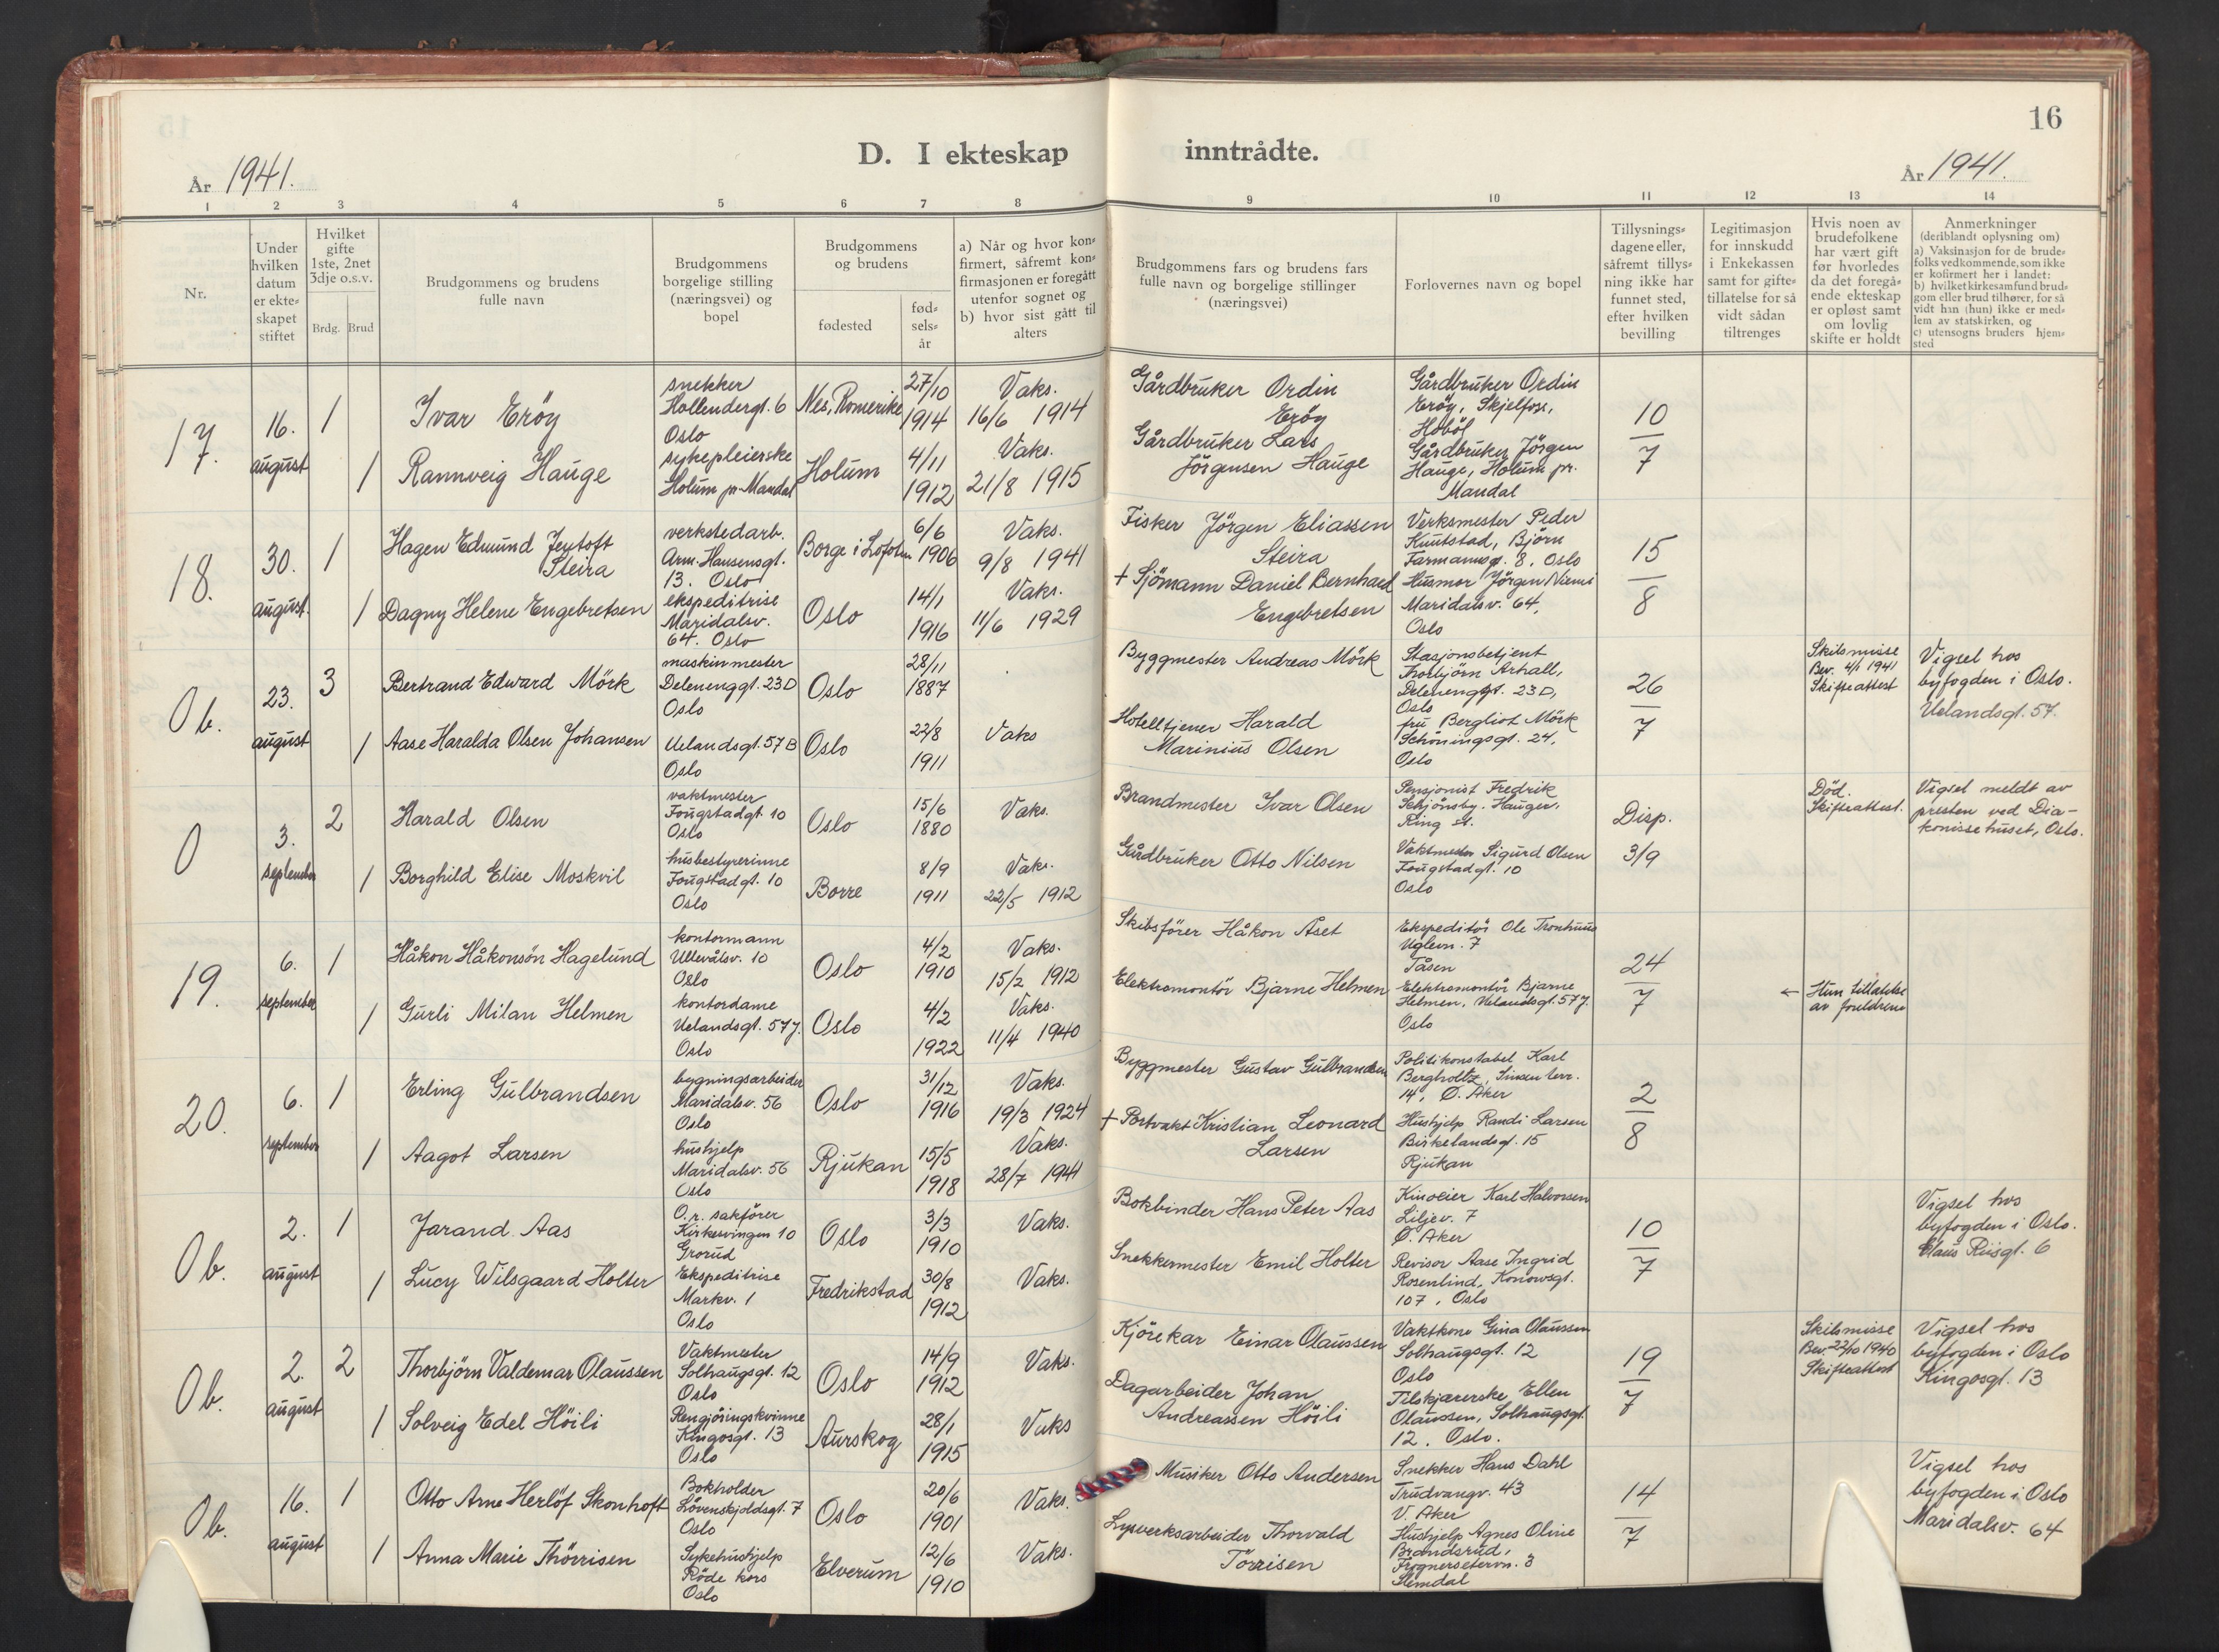 16
D. I ekteskap inntrådte.
År 1941.
År 1941.
1 2 3 4 5 6 7 8 9 10 11 12 13 14
Nr.
Under
hvilken
datum
er ekte-
skapet
stiftet
Hvilket
gifte
1ste, 2net
3dje o.s.v.
Brdg. Brud
Brudgommens og brudens
fulle navn
Brudgommens
borgelige stilling
(næringsvei) og
bopel
Brudgommens
og brudens
fødested
fød-
sels-
år
a) Når og hvor kon-
firmert, såfremt kon-
firmasjonen er foregått
utenfor sognet og
b) hvor sist gått til
alters
Brudgommens fars og brudens fars
fulle navn og borgelige stillinger
(næringsvei)
Forlovernes navn og bopel
Tillysnings-
dagene eller,
såfremt tillys-
ning ikke har
funnet sted,
efter hvilken
bevilling
Legitimasjon
for innskudd
i Enkekassen
samt for gifte-
tillatelse for så
vidt sådan
tiltrenges
Hvis noen av
brudefolkene
har vært gift
før hvorledes
da det foregå-
ende ekteskap
er opløst samt
om lovlig
skifte er holdt
Anmerkninger
(deriblandt oplysning om)
a) Vaksinasjon for de brude-
folks vedkommende, som ikke
er kofirmert her i landet:
b) hvilket kirkesamfund brud-
gom eller brud tilhører, for så
vidt han (hun) ikke er med-
lem av statskirken, og
c) utensogns bruders hjem-
sted
17.
16.
august
1
Ivar Eröy
snekker
Hollendergt. 6
Oslo
Nes, Romerike
27/10
1914
Vaks.
16/6 1914
Gårdbruker Ordin
Eröy
Gårdbruker Ordin
Eröy, Skjelfoss,
Hobøl
10
7
1
Rannveig Hauge
sykepleierske
Holum pr. Mandal
Holum
4/11
1912
Vaks.
21/8 1915
Gårdbruker Lars
Jörgensen Hauge
Gårdbruker Jörgen
Hauge, Holum pr.
Mandal
18.
30.
august.
1
Hagen Edmund Jentoft
Steira
verkstedarb.
Arm. Hansensgt.
13. Oslo
Borge i Lofoten
6/6
1906
Vaks.
9/8 1941
Fisker Jörgen Eliassen
Steira
Verksmester Peder
Knutstad, Björn
Farmannsgt. 8, Oslo
15
8
1
Dagny Helene Engebretsen
ekspeditrise
Maridalsv.
64. Oslo
Oslo
14/1
1916
Vaks.
11/6 1929
+ Sjömann Daniel Bernhard
Engebretsen
Husmor Jörgen Niemi
Maridalsv. 64,
Oslo
0b.
23.
august
3
Bertrand Edward Mörk
maskinmester
Delenenggt. 23D
Oslo
Oslo
28/11
1887
Byggmester Andreas Mörk
Stasjonsbetjent
Torbjörn Arhall,
Delenenggt. 23D,
Oslo
26
7
Skilsmisse
Bev. 4/1 1941
Skifteattest
Vigsel hos
byfogden i Oslo.
Uelandsgt. 57.
1
Aase Haralda Olsen Johansen
Uelandsgt. 57B
Oslo
Oslo
22/8
1911
Vaks
Hotelltjener Harald
Marinius Olsen
fru Bergliot Mörk
Schöningsgt. 24,
Oslo
0
3.
september
2
Harald Olsen
vaktmester
Fougstadgt. 10
Oslo
Oslo
15/6
1880
Vaks.
Brandmester Ivar Olsen
Pensjonist Fredrik
Schjönsby. Hauger,
Ring st.
Disp.
3/9
Död.
Skifteattest.
Vigsel meldt av
presten ved Dia-
konissehuset, Oslo.
1
Borghild Elise Moskvil
husbestyrerinne
Fougstadgt. 10
Oslo
Borre
8/9
1911
Vaks.
22/5 1912
Gårdbruker Otto Nilsen
Vaktmester Sigurd Olsen
Fougstadgt. 10
Oslo
19.
6.
september
1
Håkon Håkonsön Hagelund
kontormann
Ullevålsv. 10
Oslo
Oslo
4/2
1910
Vaks.
15/2 1912
Skibsförer Håkon Åset
Ekspeditör Ole Tronhuus
Uglevn. 7
Tåsen
24
7
← Hun tillatelse
av foreldrene
1
Gurli Milan Helmen
kontordame
Uelandsgt. 57J.
Oslo
Oslo
4/2
1922
Vaks.
11/4 1940
Elektromontör Bjarne Helmen
Elektromontör Bjarne
Helmen, Uelandsgt. 57J.
Oslo
20.
6.
september
1
Erling Gulbrandsen
bygningsarbeider
Maridalsv. 56
Oslo
Oslo
31/12
1916
Vaks.
19/3 1924
Byggmester Gustav Gulbrandsen
Politikonstabel Karl
Bergholtz, Sinsen terr.
14, Ø. Aker
2
8
1
Aagot Larsen
hushjelp
Maridalsv. 56
Oslo
Rjukan
15/5
1918
Vaks.
28/7 1941
+ Portvakt Kristian Leonard
Larsen
Hushjelp Randi Larsen
Birkelandsgt. 15
Rjukan
0b.
2.
august
1
Jarand Aas
O.r. sakförer
Kirkesvingen 10
Grorud
Oslo
3/3
1910
Vaks.
Bokbinder Hans Peter Aas
Kinoeier Karl Halvorsen
Liljev. 7
Ø. Aker
10
7
Vigsel hos
byfogden i Oslo.
Claus Riisgt. 6
1
Lucy Wilsgaard Holter
Ekspeditrise
Markv. 1
Oslo
Fredrikstad
30/8
1912
Vaks.
Snekkermester Emil Holter
Revisor Aase Ingrid
Rosenlind, Konowsgt.
107, Oslo
0b.
2.
august
2
Thorbjörn Valdemar Olaussen
Vaktmester
Solhaugsgt. 12
Oslo
Oslo
14/9
1912
Vaks.
Kjörekar Einar Olaussen
Vaktkone Gina Olaussen
Solhaugsgt. 12
Oslo
19
7
Skilsmisse
Bev. 22/10 1940
Skifteattest
Vigsel hos
byfogden i Oslo
Kingosgt. 13
1
Solveig Edel Höili
Rengjöringskvinne
Kingosgt. 13
Oslo
Aurskog
28/1
1915
Vaks
Dagarbeider Johan
Andreassen Höili
Tilskjærerske Ellen
Olaussen, Solhaugsgt.
12. Oslo.
0b.
16.
august
1
Otto Arne Herlöf Skonhoft
Bokholder
Lövenskjoldsgt. 7
Oslo
Oslo
20/6
1901
Vaks.
Musiker Otto Andersen
Snekker Hans Dahl
Trudvangv. 43
V. Aker
14
7
Vigsel hos
byfogden i Oslo
Maridalsv. 64
1
Anna Marie Thörrisen
Sykehushjelp
Röde kors
Oslo
Elverum
12/6
1910
Vaks.
Lysverksarbeider Thorvald
Törrisen
Hushjelp Agnes Oline
Brandsrud,
Frognerseterv. 3
Slemdal